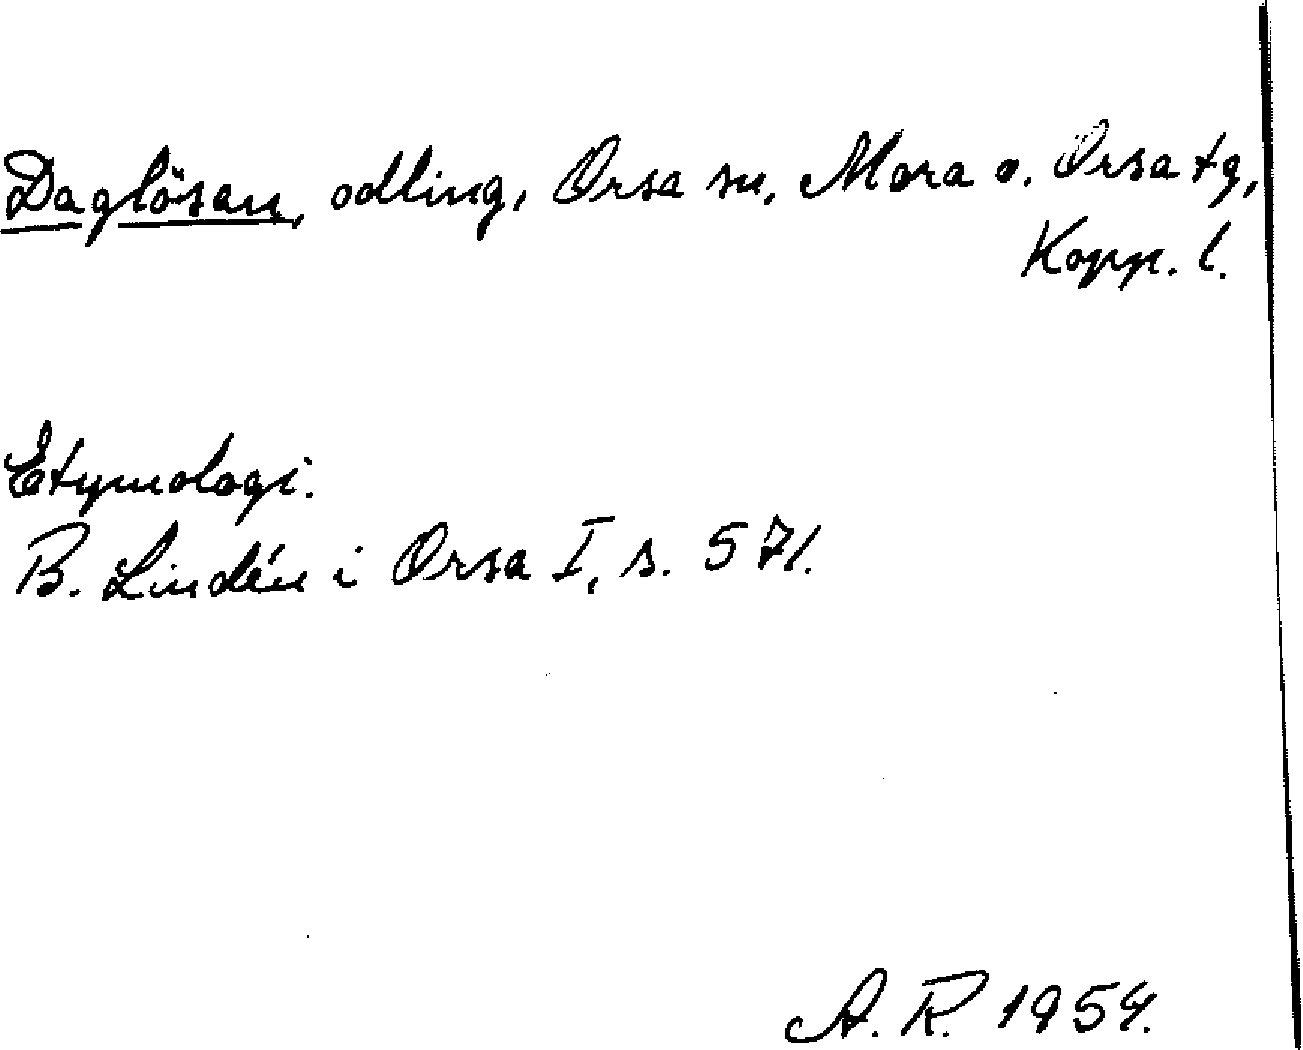 Daglösan, odling, Orsa sn, Mora o. Orsa tg,
Kopp. l.
Etymologi.
B. Lindén i Orsa I, s. 571.
A. R. 1954.